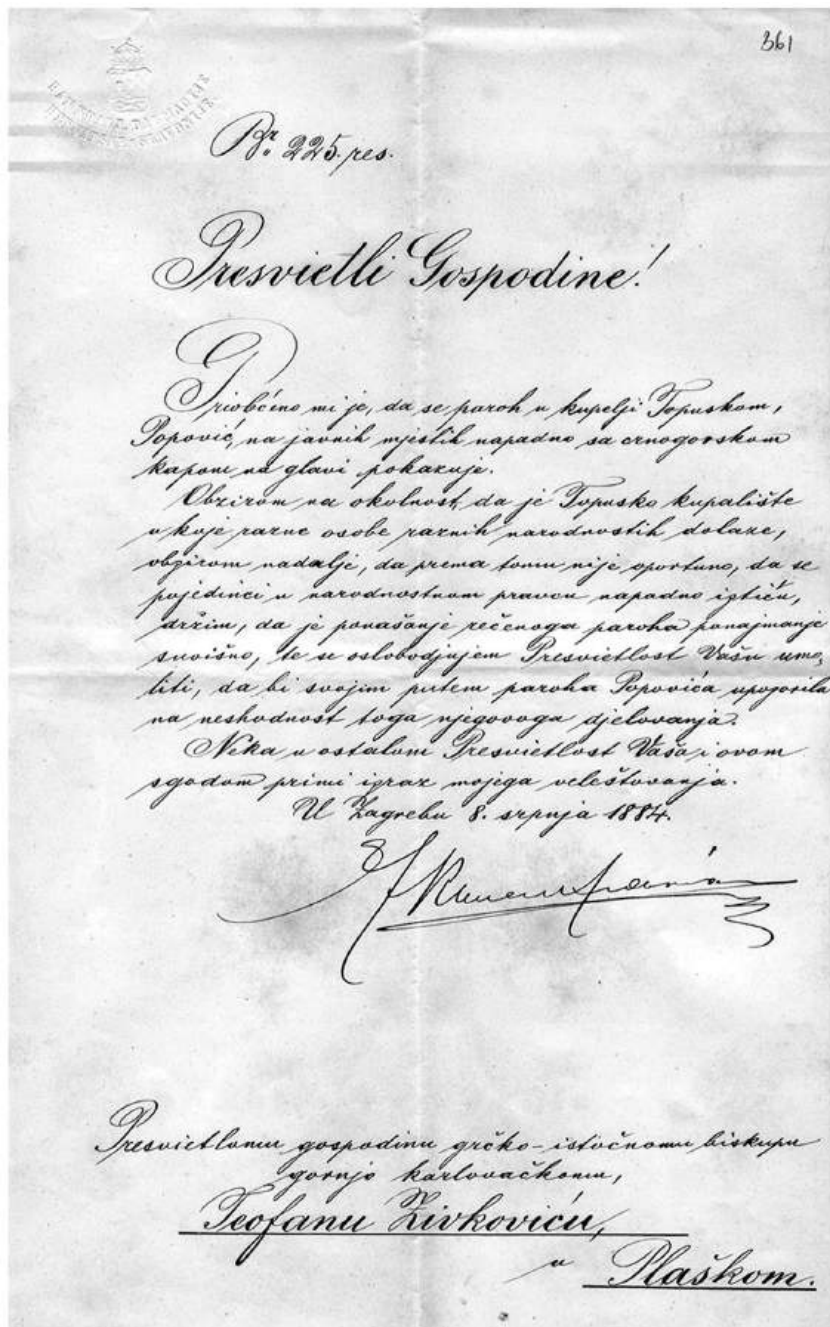 361
Br. 225. res.
Presvietli Gospodine!
Priobćeno mi je, da se paroh u kupelji Topuskom,
Popović, na javnih mjestih napadno sa crnogorskom
kapom na glavi pokazuje.
Obzirom na okolnost, da je Topusko kupalište
u koje razne osobe raznih narodnostih dolaze,
obzirom nadalje, da prema tomu nije oportuno, da se
pojedinci u narodnostnom pravcu napadno iztiču,
držim, da je ponašanje rečenoga paroha ponajmanje
suvišno, te se oslobodjujem Presvietlost Vašu umo-
liti, da bi svojim putem paroha Popovića upozorila
na neshodnost toga njegovoga djelovanja.
Neka u ostalom Presvietlost Vaša i ovom
sgodom primi izraz mojega veleštovanja.
U Zagrebu 8. srpnja 1884.
Presvietlomu gospodinu grčko-istočnomu biskupu
gornjo karlovačkomu,
Teofanu Živkoviću,
u Plaškom.